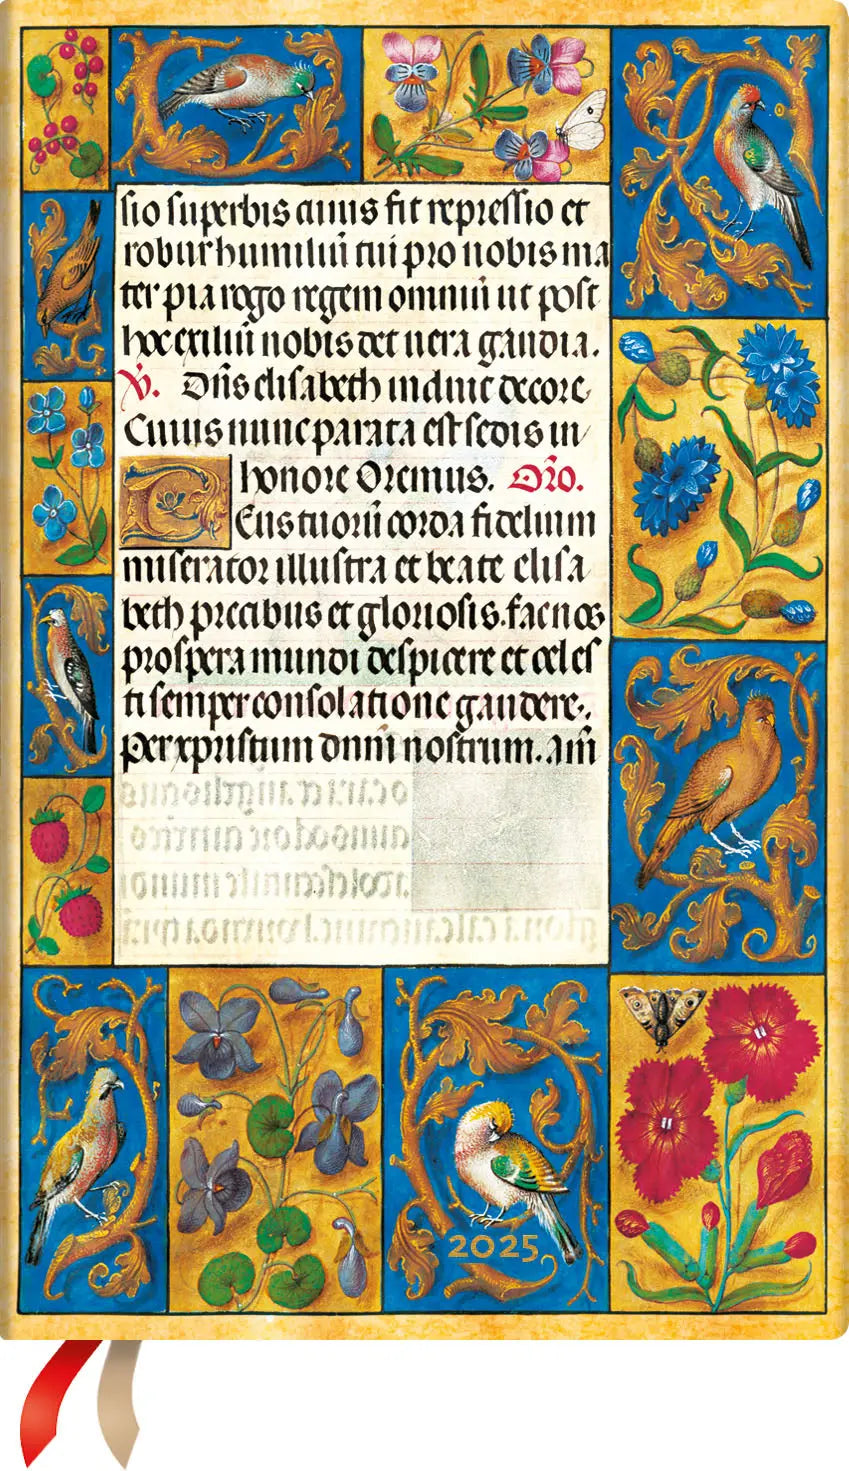 sio superbis cuius fit repressio et
robur humiliū tui pro nobis ma
ter pia rogo regem omniū ut post
hoc exiliū nobis det uera gaudia.
V. Dn̄s elisabeth induit decore
Cuius nunc parata est sedis in
honore Oremus. Or̄o.
DEus tuorū corda fidelium
miserator illustra et beate elisa
beth precibus et gloriosis. fac nos
prospera mundi despicere et celes
ti semper consolatione gaudere.
Per xpristum dnm̄ nostrum. am̄
2025